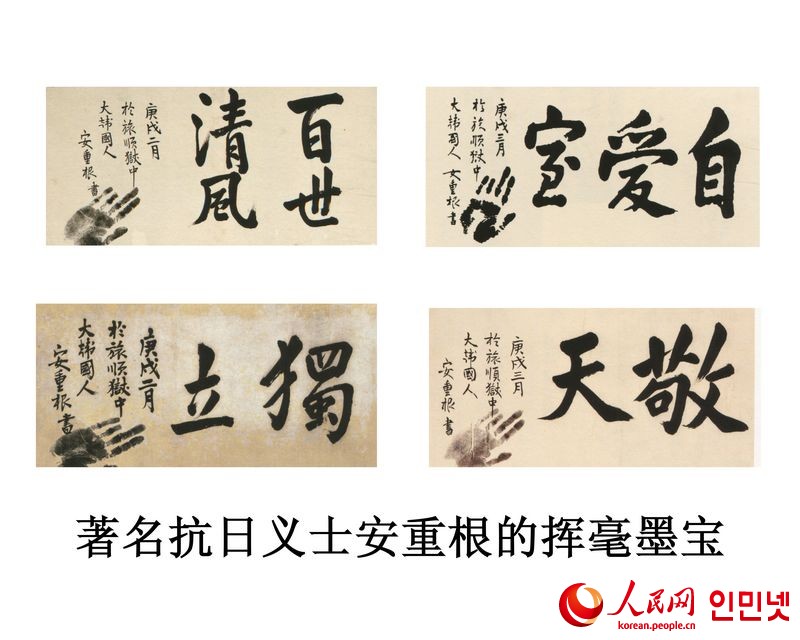 百世
清風
庚戌二月
於旅順獄中
大韓國人
安重根 書
自愛室
庚戌三月
於旅順獄中
大韓國人 安重根 書
獨立
庚戌二月
於旅順獄中
大韓國人
安重根 書
敬天
庚戌三月
於旅順獄中
大韓國人
安重根 書
著名抗日义士安重根的挥毫墨宝
人民网 인민넷
korean.people.cn